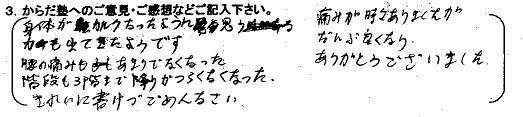 3. からだ塾へのご意見・ご感想などご記入下さい。
身体が軽くなったように思う
力も出てきたようです
腰の痛みもあまりでなくなった
階段も3階まで降りがつらくなくなった。
きれいに書けづごめんなさい
痛みが時々ありましたが
だんだん良くなり
ありがとうございました